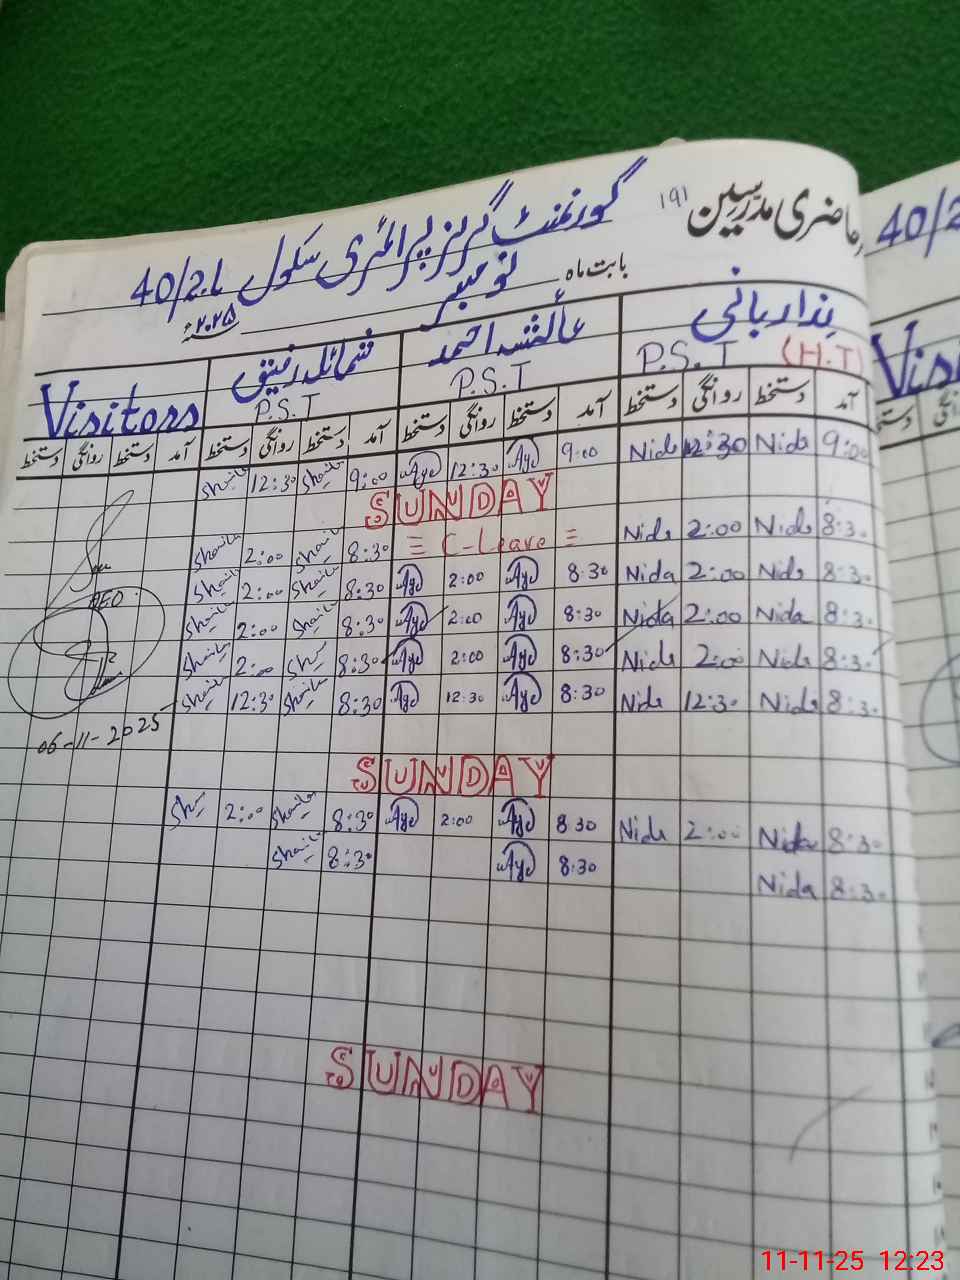 حاضری مدرسین 191
گورنمنٹ گرلز پرائمری سکول 40/2.L
بابت ماہ نومبر ۲۰۲۵ء
40/2
Visitors شمائلہ رفیق عائشہ احمد ندا ربانی
P.S.T P.S.T P.S.T (H.T)
دستخط روانگی دستخط آمد دستخط روانگی دستخط آمد دستخط روانگی دستخط آمد دستخط روانگی دستخط آمد
Shaila 12:30 Shaila 9:00 Aye 12:30 Aye 9:00 Nida 12:30 Nida 9:00
SUNDAY
Shaila 2:00 Shaila 8:30 C-Leave Nida 2:00 Nida 8:30
Shaila 2:00 Shaila 8:30 Aye 2:00 Aye 8:30 Nida 2:00 Nida 8:30
AEO
Shaila 2:00 Shaila 8:30 Aye 2:00 Aye 8:30 Nida 2:00 Nida 8:30
Shaila 2:00 Sha 8:30 Aye 2:00 Aye 8:30 Nida 2:00 Nida 8:30
Shaila 12:30 Shaila 8:30 Aye 12:30 Aye 8:30 Nida 12:30 Nida 8:30
06-11-2025
SUNDAY
Sha 2:00 Shaila 8:30 Aye 2:00 Aye 8:30 Nida 2:00 Nida 8:30
Shaila 8:30 Aye 8:30 Nida 8:30
SUNDAY
11-11-25 12:23